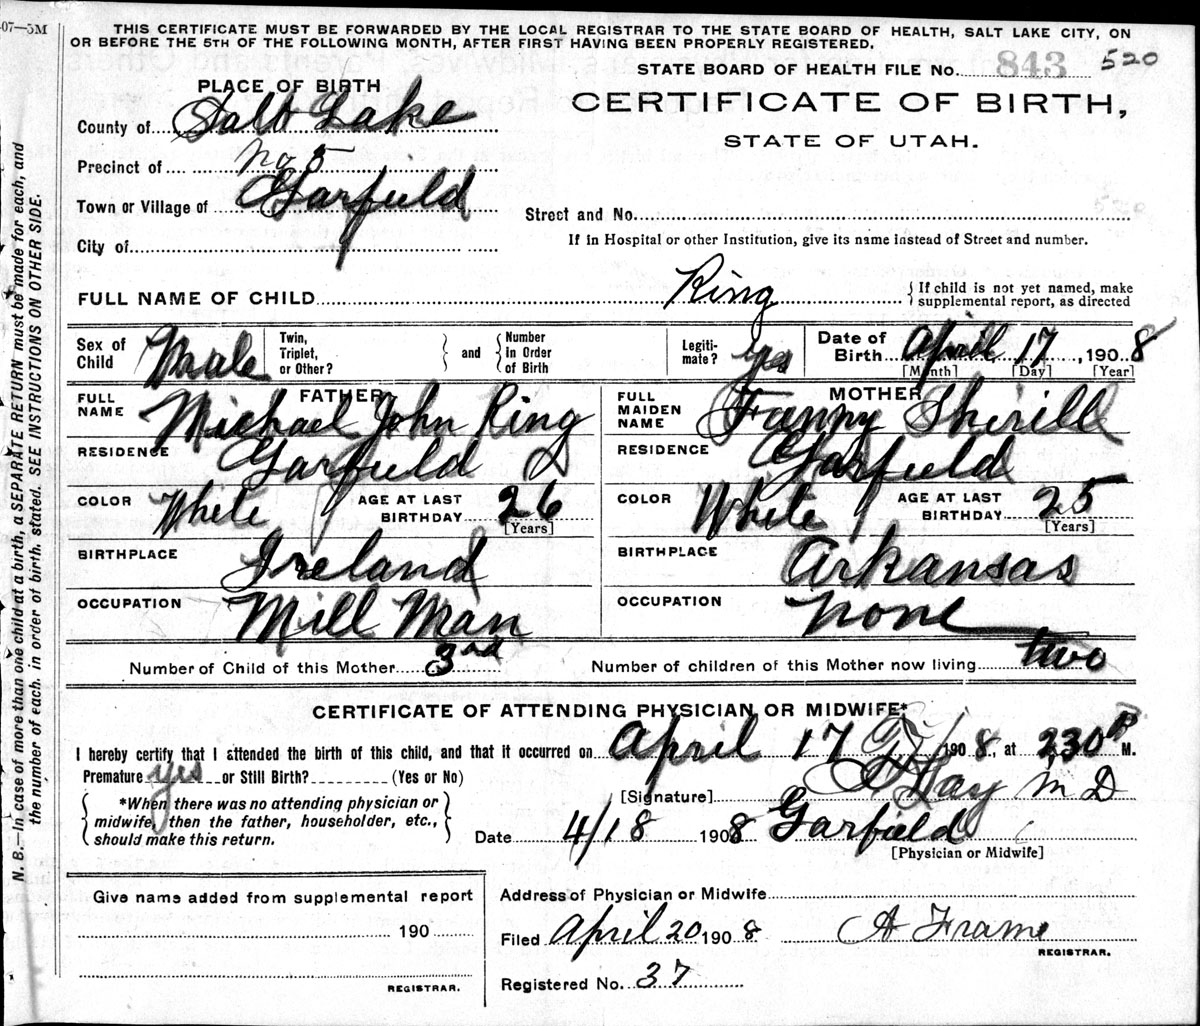 07—5M
THIS CERTIFICATE MUST BE FORWARDED BY THE LOCAL REGISTRAR TO THE STATE BOARD OF HEALTH, SALT LAKE CITY, ON
OR BEFORE THE 5TH OF THE FOLLOWING MONTH, AFTER FIRST HAVING BEEN PROPERLY REGISTERED.
STATE BOARD OF HEALTH FILE No. 843 520
PLACE OF BIRTH
CERTIFICATE OF BIRTH,
STATE OF UTAH.
County of Salt Lake
Precinct of No 5
Town or Village of Garfield
Street and No.
City of
If in Hospital or other Institution, give its name instead of Street and number.
FULL NAME OF CHILD Ring { If child is not yet named, make
supplemental report, as directed
Sex of Child Male Twin, Triplet, or Other? } and { Number In Order of Birth Legiti-mate? yes Date of Birth April 17, 1908
[Month] [Day] [Year]
FATHER MOTHER
FULL NAME Michael John Ring FULL MAIDEN NAME Fanny Sherill
RESIDENCE Garfield RESIDENCE Garfield
COLOR White AGE AT LAST BIRTHDAY 26 [Years] COLOR White AGE AT LAST BIRTHDAY 25 [Years]
BIRTHPLACE Ireland BIRTHPLACE Arkansas
OCCUPATION Mill Man OCCUPATION none
Number of Child of this Mother 3rd Number of children of this Mother now living two
CERTIFICATE OF ATTENDING PHYSICIAN OR MIDWIFE*
I hereby certify that I attended the birth of this child, and that it occurred on April 17 1908, at 230 P M.
Premature yes or Still Birth? (Yes or No)
[Signature] Hay M D
{ *When there was no attending physician or
midwife, then the father, householder, etc.,
should make this return. }
Date 4/18 1908 Garfield
[Physician or Midwife]
Give name added from supplemental report
190
REGISTRAR.
Address of Physician or Midwife
Filed April 20 1908 A Frame
REGISTRAR.
Registered No. 37
N. B.—In case of more than one child at a birth, a SEPARATE RETURN must be made for each, and
the number of each, in order of birth, stated. SEE INSTRUCTIONS ON OTHER SIDE.